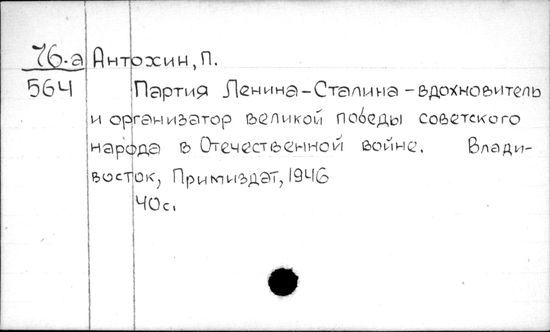 76.а Антохин, П.
564 Партия Ленина-Сталина - вдохновитель
и организатор великой победы советского
народа в Отечественной войне. Влади-
восток, Примиздат, 1946
40с.